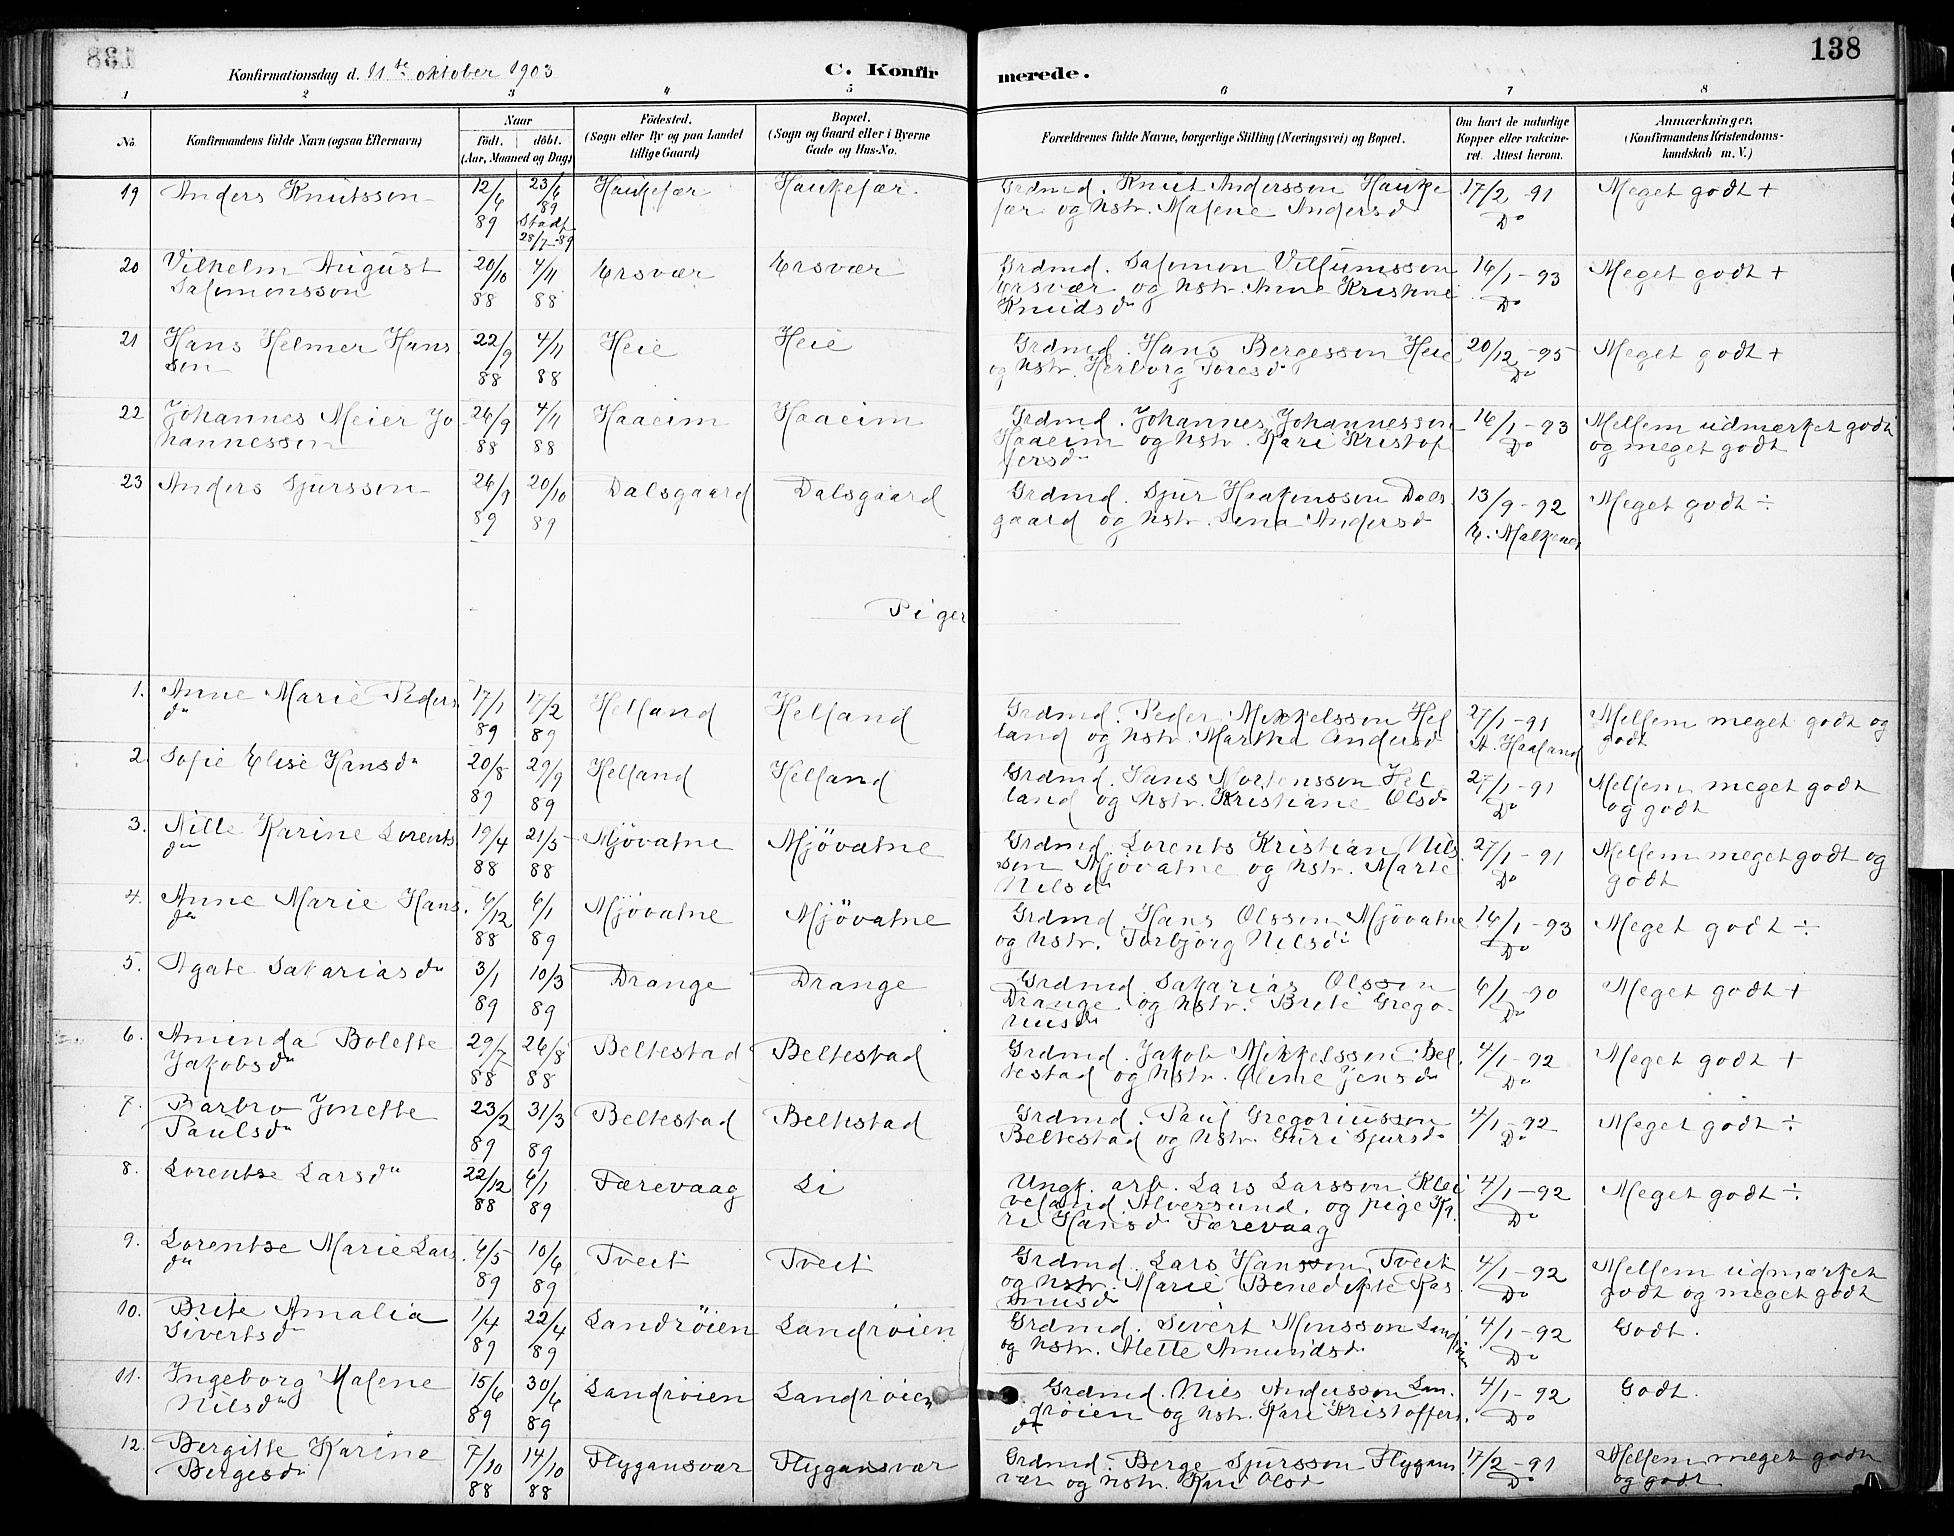 138
Konfirmationsdag d. 11te oktober 1903
C. Konfirmerede.
1 2 3 4 5 6 7 8
No.
Konfirmandens fulde Navn (ogsaa Efternavn)
Naar födt. döbt. (Aar, Maaned og Dag)
Födested. (Sogn eller By og paa Landet tillige Gaard)
Bopæl. (Sogn og Gaard eller i Byerne Gade og Hus-No.
Forældrenes fulde Navne, borgerlige Stilling (Næringsvei) og Bopæl.
Om havt de naturlige Kopper eller vakcineret. Attest herom.
Anmærkninger. (Konfirmandens Kristendomskundskab m. V.)
19 Anders Knutsson 12/6 89 23/6 89 Stadf. 28/7-89 Haukefær Haukefær. Grdmd. Knut Andersson Haukefær og hstr. Malene Andersd 17/2-91 Do Meget godt +
20 Vilhelm August Salomonsson 20/10 88 4/11 88 Ersvær Ersvær Grdmd. Salomon Villumsson Ersvær og hstr. Anne Kristine Knudsdr 16/1-93 Do Meget godt +
21 Hans Helmer Hansson 22/9 88 4/11 88 Heie Heie Grdmd. Hans Bergesson Heie og hstr. Herborg Toresd 20/12-95 Do Meget godt +
22 Johannes Meier Johannesson 26/9 88 4/11 88 Haaeim Haaeim Grdmd. Johannes Johannesson Haaeim og hstr. Kari Kristoffersdr 16/1-93 Do Mellem udmærket godt og meget godt
23 Anders Sjursson 26/9 89 20/10 89 Dalsgaard Dalsgaard Grdmd. Sjur Haakonsson Dalsgaard og hstr. Sena Andersd 13/9-92 Meget godt ÷
Piger
1. Anne Marie Pedersdr 17/1 89 17/2 89 Helland Helland Grdmd. Peder Mikkelsson Helland og hstr. Martha Andersd 27/1-91 A. Haaland Mellem meget godt og godt
2. Sofie Elise Hansdr 20/8 89 29/9 89 Helland Helland Grdmd. Hans Mortensson Helland og hstr. Kristiane Olsdr 27/1-91 Do Mellem meget godt og godt
3. Nille Karine Lorentsdr 19/4 88 21/5 88 Mjövatne Mjövatne Grdmd. Lorents Kristian Nilsson Mjövatne og hstr. Marte Nilsdr 27/1-91 Do Mellem meget godt og godt
4. Anne Marie Hansdr 6/12 88 6/1 89 Mjövatne Mjövatne Grdmd. Hans Olsson Mjövatne og hstr. Torbjörg Nilsdr 16/1-93 Do Meget godt ÷
5. Agate Sakariasdr 3/1 89 10/3 89 Drange Drange Grdmd. Sakarias Olsson Drange og hstr. Brite Gregoriusdr 6/1-90 Do Meget godt +
6. Aminda Bolette Jakobsdr 29/7 88 26/8 88 Beltestad Beltestad Grdmd. Jakob Mikkelsson Beltestad og hstr. Oline Jensdr 4/1-92 Do Meget godt +
7. Barbro Jonette Paulsdr 23/2 89 31/3 89 Beltestad Beltestad Grdmd. Paul Gregoriusson Beltestad og hstr. Guri Sjursdr 4/1-92 Do Meget godt ÷
8. Lorentse Larsdr 22/12 88 6/1 89 Færevaag Li Ungk. arb. Lars Larsson Kleiveland Alversund. og pige Kari Hansd Færevaag 4/1-92 Do Meget godt ÷
9. Lorentse Marie Larsdr 6/5 89 10/6 89 Tveit Tveit Grdmd. Lars Hansson Tveit og hstr. Marie Benedikte Rasmusd 4/1-92 Do Mellem udmærket godt og meget godt
10. Brite Amalia Sivertsdr 1/4 89 22/4 89 Landröien Landröien Grdmd. Sivert Monsson Landröien og hstr. Alette Amundsdr 4/1-92 Do Godt.
11. Ingeborg Malene Nilsdr 15/6 89 30/6 89 Landröien Landröien Grdmd. Nils Andersson Landröien og hstr. Kari Kristoffersdr 4/1-92 Do Godt.
12. Bergitte Karine Bergesdr 7/10 88 14/10 88 Flygansvær Flygansvær Grdmd. Berge Sjursson Flygansvær og hstr. Kari Olsd 17/2-91 Do Mellem meget godt og godt